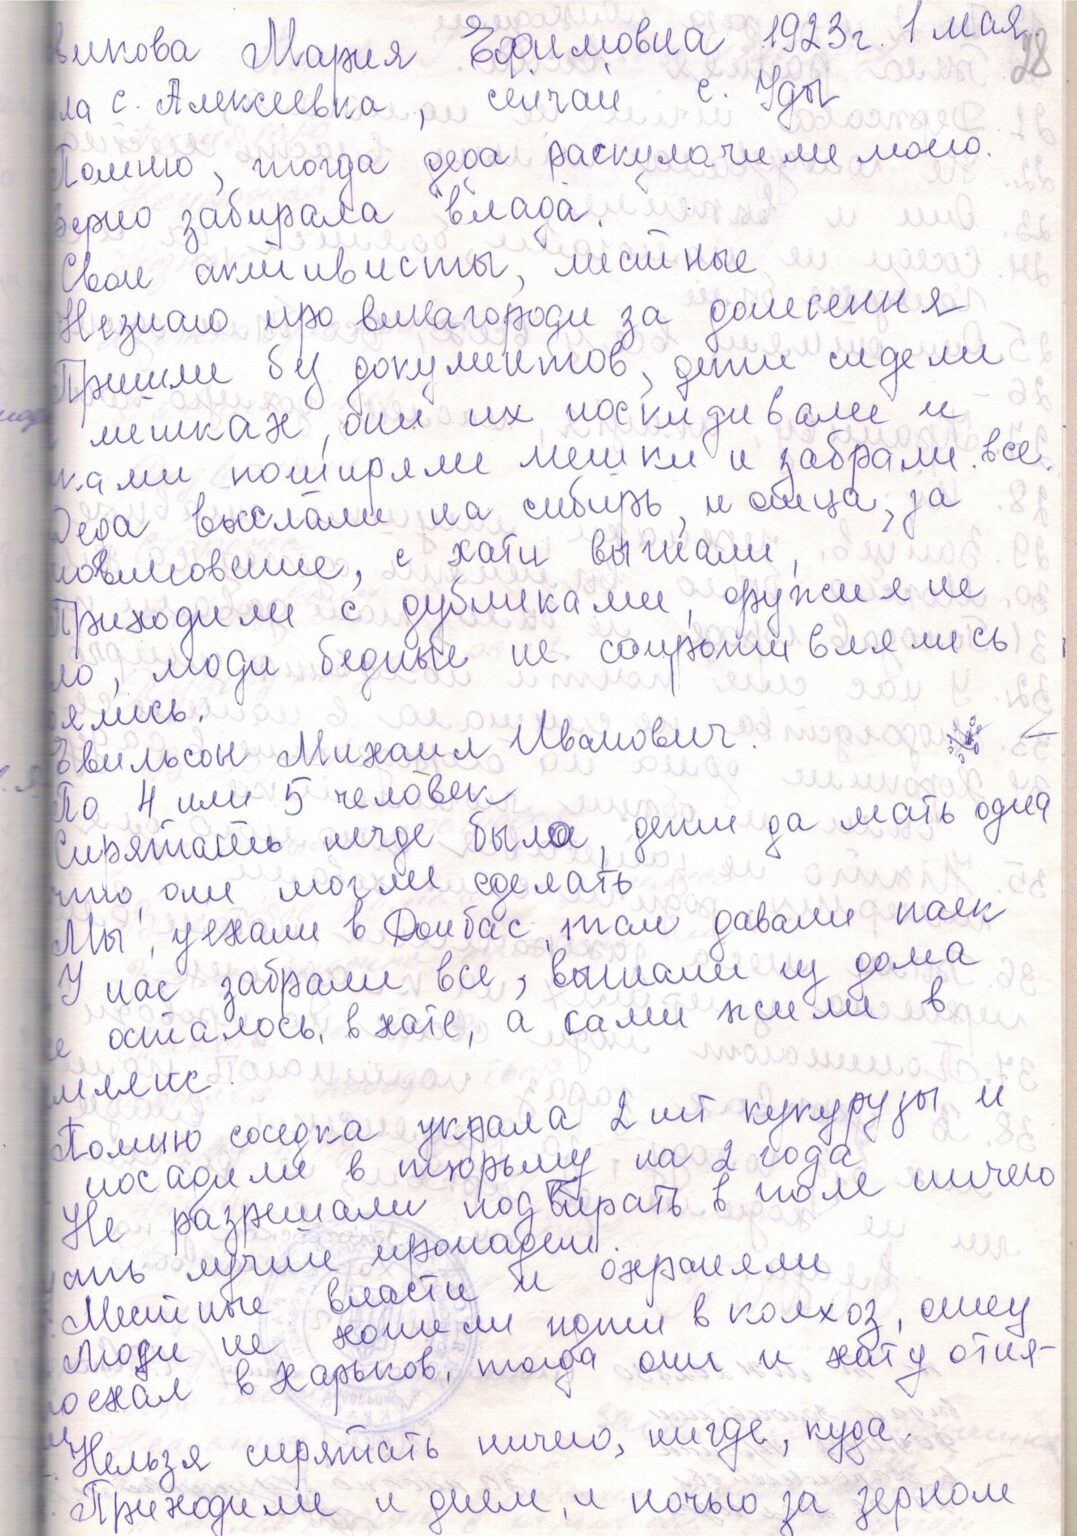 викова Мария Ефимовна 1923г. 1 мая
28
ла с. Алексеевка, сейчас с. Уды
Помню, тогда деда раскулачили моего.
зерно забирала "влада".
Свои активисты, местные
Незнаю про винагороди за донесення
Пришли без документов, дети сидели
мешках, они их поскидивали и
ками поширяли мешки и забрали все.
Деда выслали на сибирь, и отца, за
с хати выгнали,
Приходили с дубинками, оружия не
ло, люди бедные не сопротивлялись
оялись.
Эвильсон Михаил Иванович.
По 4 или 5 человек
Спрятать негде было, дети да мать одна
что они могли сделать
Мы, уехали в Донбас, там давали паек
У нас забрали все, выгнали из дома
е осталось в хате, а сами жили в
млянке.
Помню соседка украла 2 шт кукурузы и
посадили в тюрьму на 2 года
Не разрешали подбирать в поле ничего
ать лучши пропадет.
Местные власти и охраняли
Люди не хотили идти в колхоз, отец
оехал в Харьков, тогда они и хату отня-
ли
Нельзя спрятать ничего, нигде, куда.
Приходили и днем, и ночью за зерном